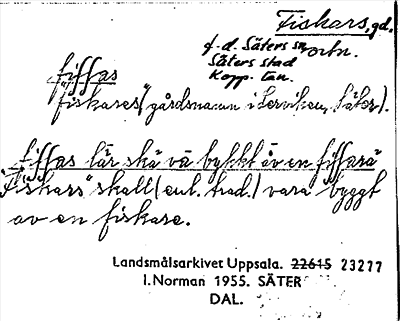 Fiskars, gd.
f.d. Säters sn
Säters stad
Kopp. län.
fiffas
"fiskares", gårdsnamn i Lerviken, Säter).
fiffas lär skä vä bykkt äv en fiffarä
"Fiskars" skall (enl. trad.) vara byggt
av en fiskare.
Landsmålsarkivet Uppsala. 22615 23277
I. Norman 1955. SÄTER
DAL.